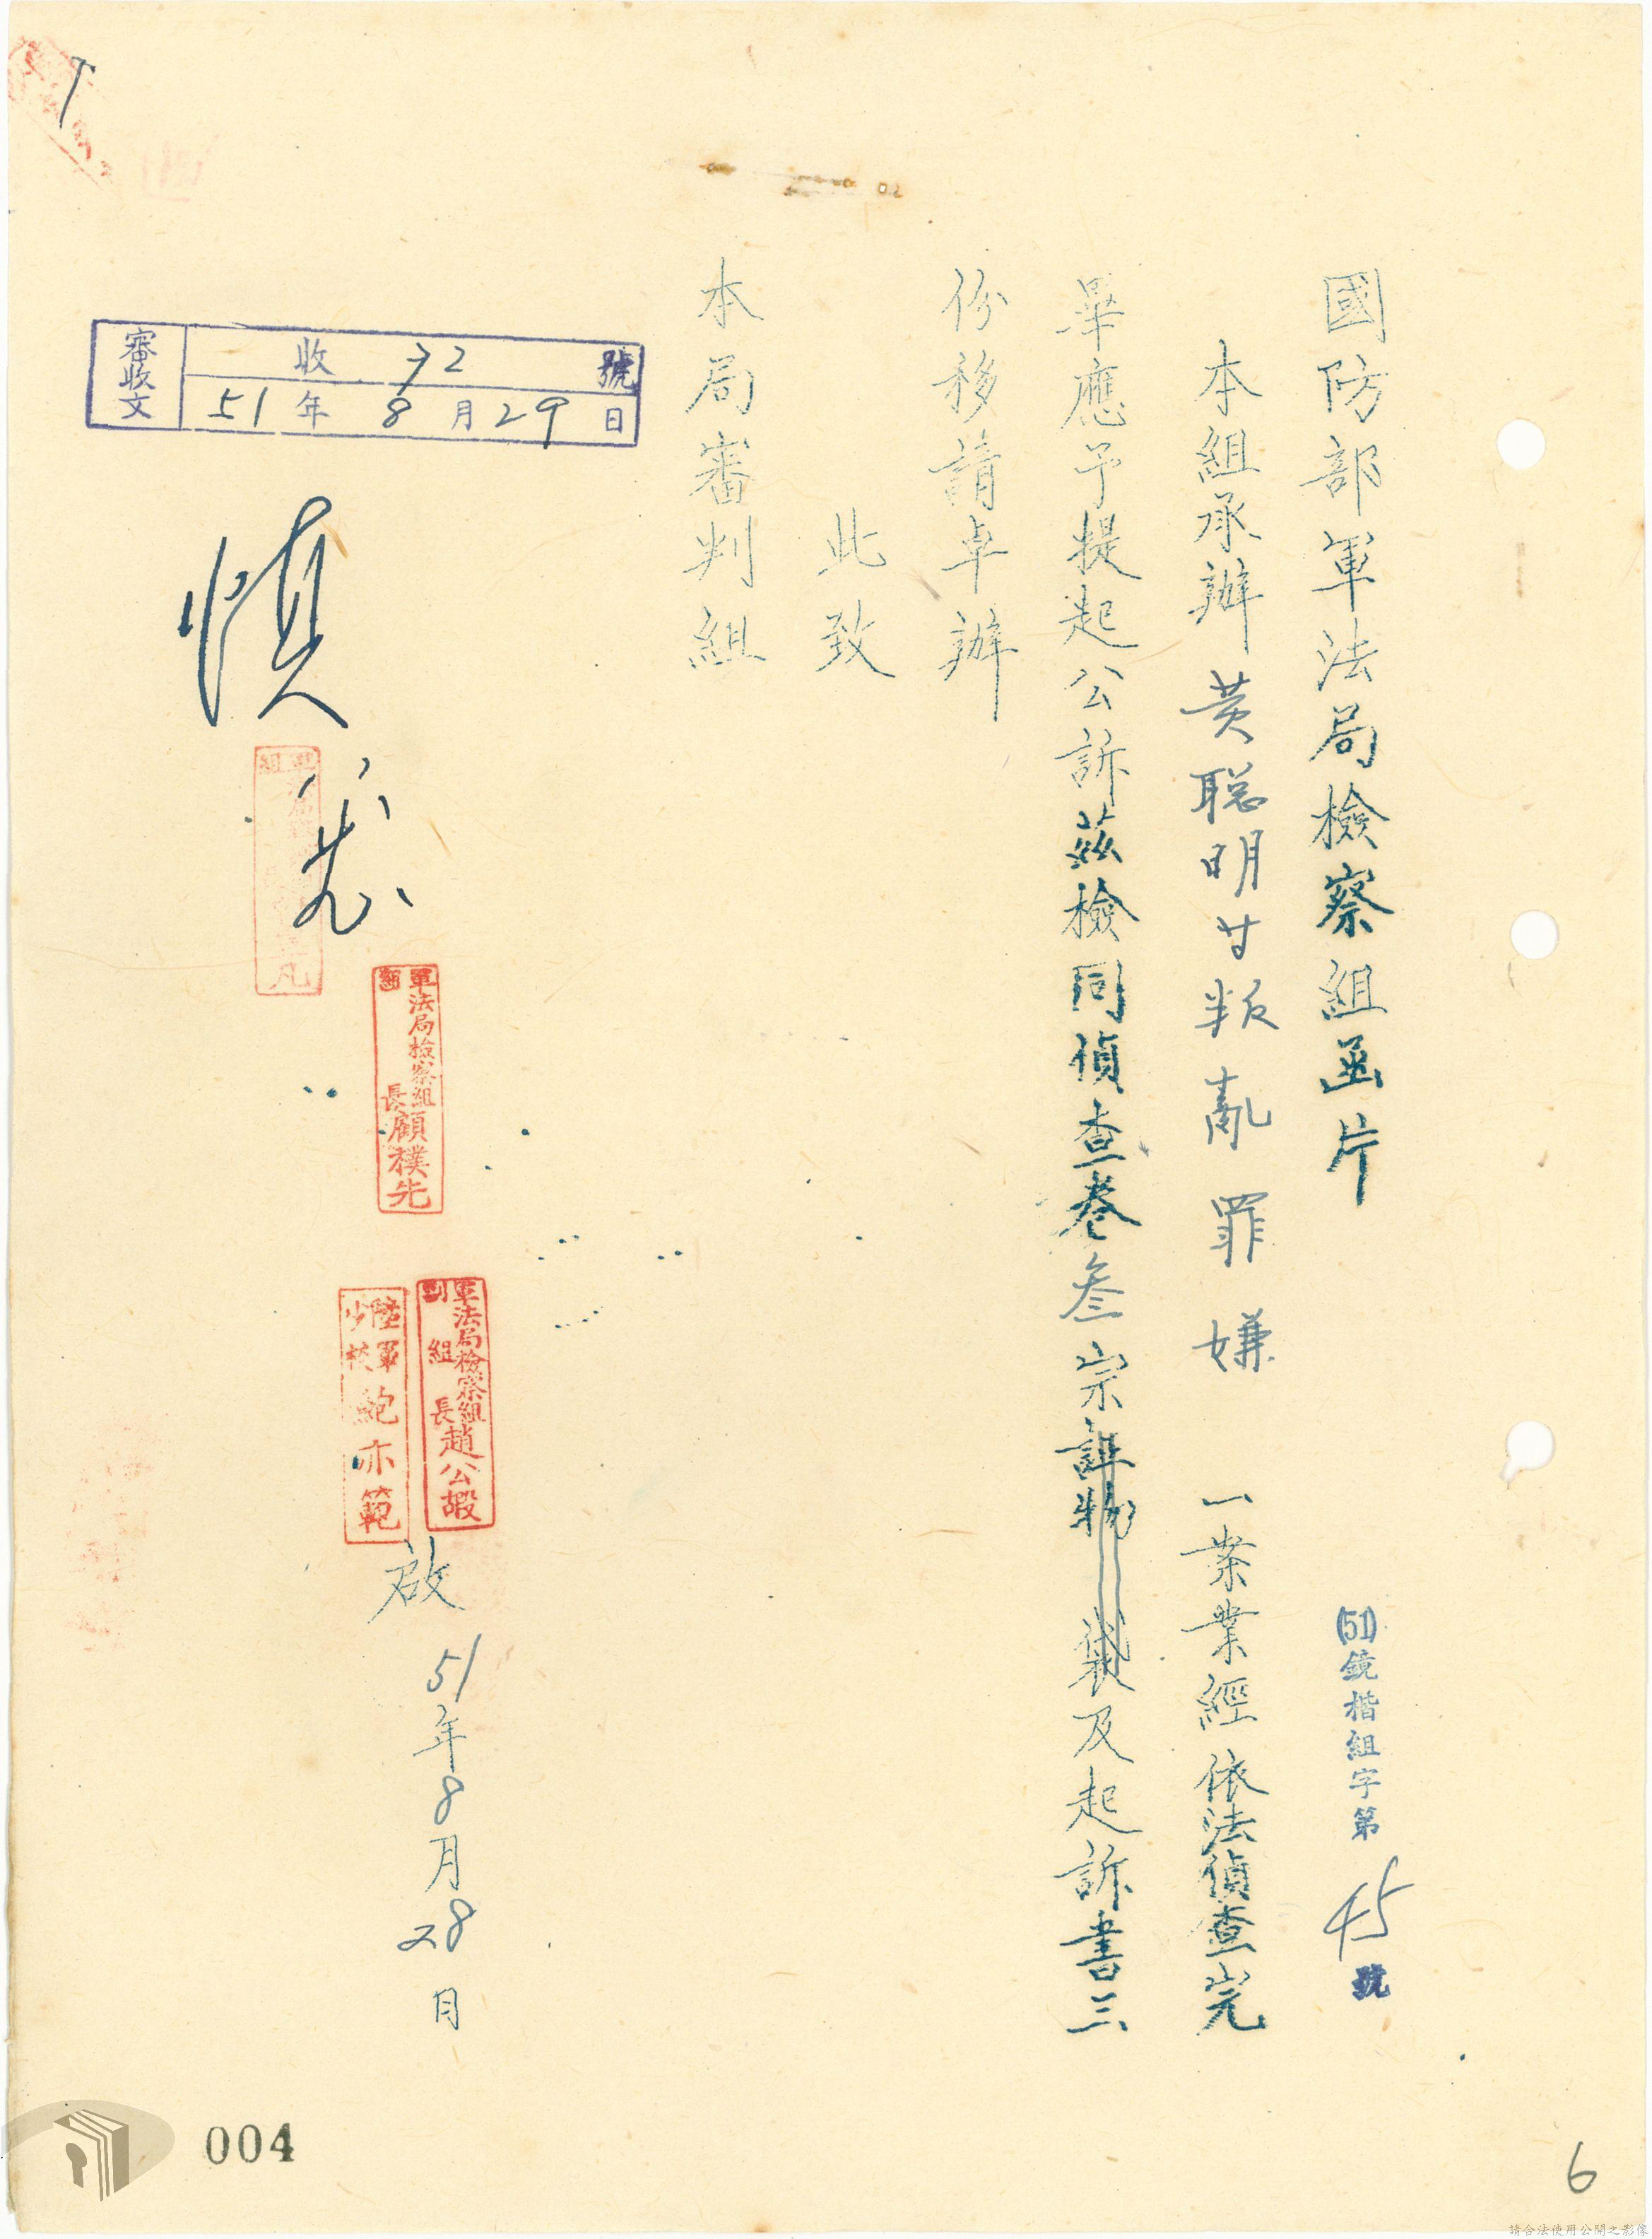 國防部軍法局檢察組函片
(51)鏡楷組字第45號
本組承辦黄聰明廿叛亂罪嫌 一案業經依法偵查完
畢應予提起公訴茲檢同偵查卷叁宗證物 袋及起訴書三
份移請卓辦
此致
本局審判組
軍法局檢察組組長顧樸先
軍法局檢察組副組長趙公嘏
陸軍少校鮑亦範
啟 51年8月28日
審收文
收 72 號
51年8月29日
慎
004
6
請合法使用公開之影像